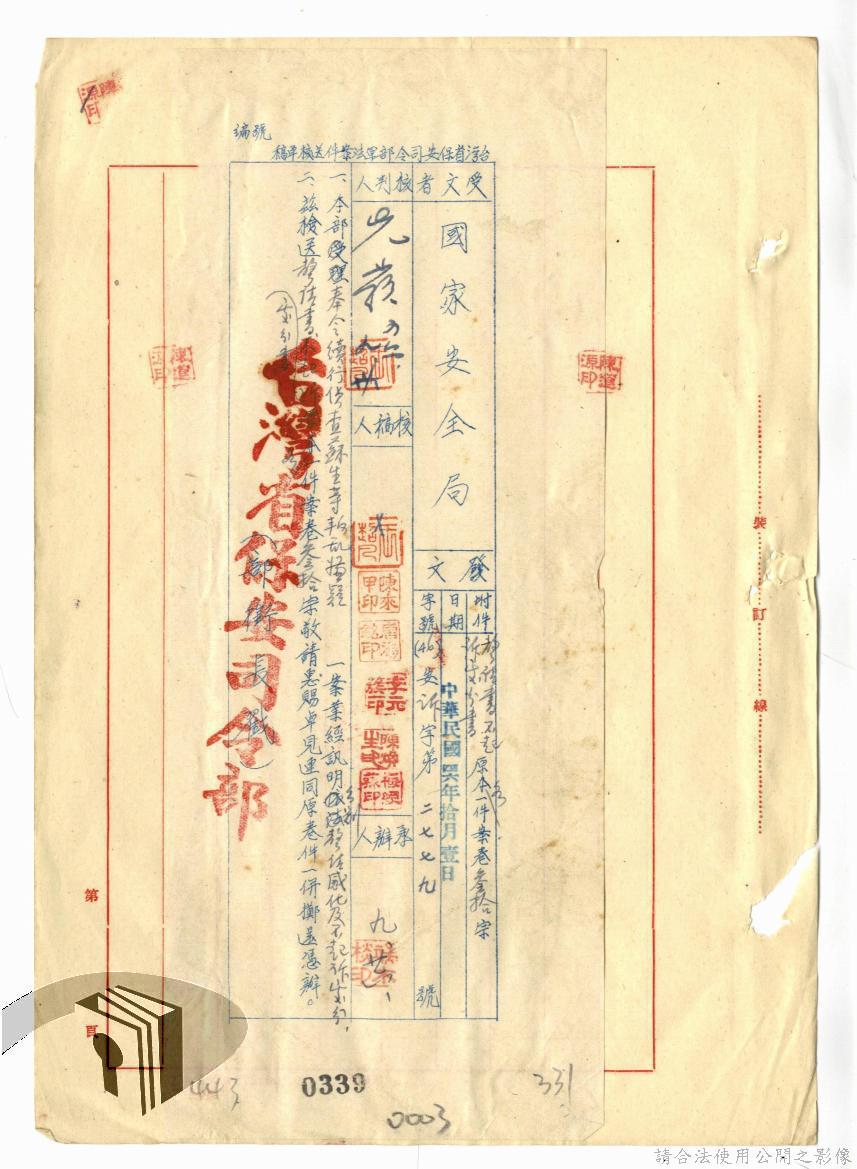 編號
台灣省保安司令部軍法案件送核單稿
受文者
國家安全局
發文
附件
聲請書不起訴處分書原本各一件案卷叁拾宗
日期
中華民國 年拾月壹日
字號
(46)安訴字第二七七九號
核判人
核稿人
承辦人
九、
一、本部受理奉令續行偵查蘇生等叛亂嫌疑一案業經訊明分別依法聲請感化及不起訴處分,
二、茲檢送聲請書 處分書 各一件案卷叁拾宗敬請惠賜卓見連同原卷件一併擲還憑辦。
(部銜長戳)
台灣省保安司令部
陳運源印
陳運源印
裝訂線
第
頁
443
0339
331
0003
請合法使用公開之影像